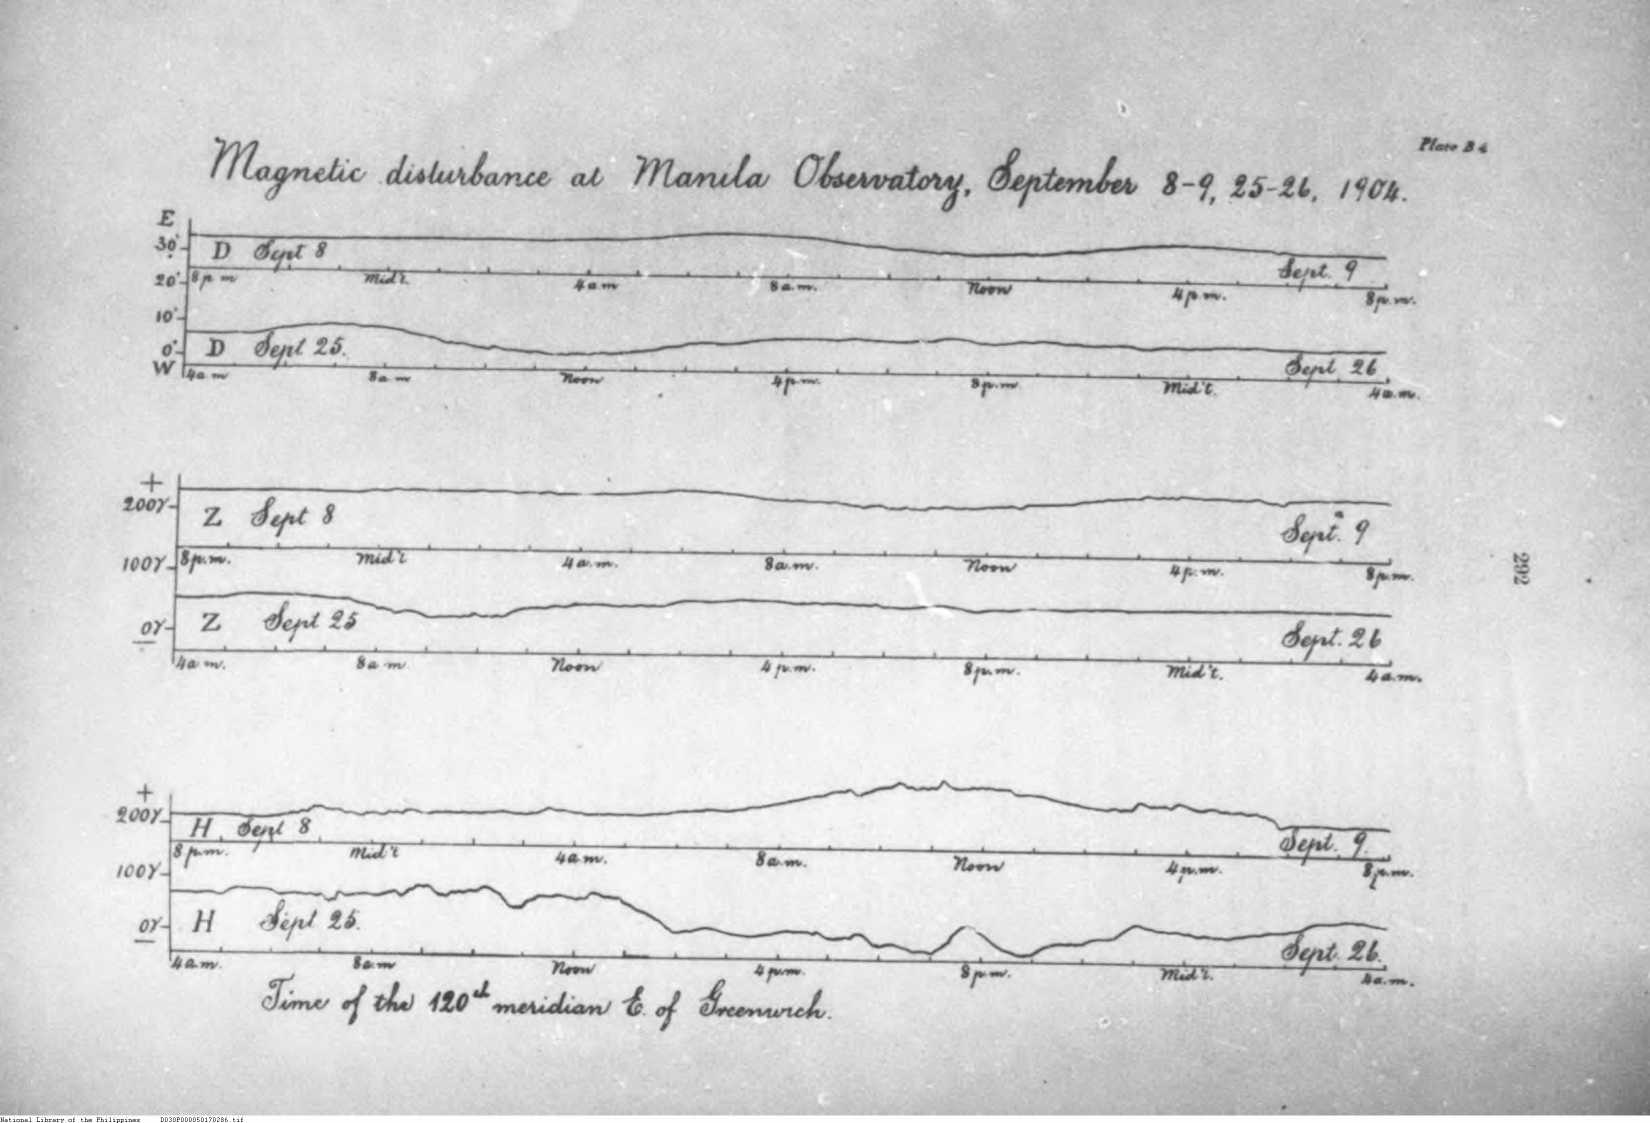 Plate B 4
Magnetic disturbance at Manila Observatory, September 8-9, 25-26, 1904.
E
30'
D Sept 8
Sept. 9
20'
8 p m Mid't. 4 a m 8 a.m. Noon 4 p.m. 8 p.m.
10'
0'
D Sept 25.
Sept 26
W
4 a m 8 a m Noon 4 p.m. 8 p.m. Mid't. 4 a.m.
+
200γ
Z Sept 8
Sept. 9
100γ
8 p.m. Mid't 4 a.m. 8 a.m. Noon 4 p.m. 8 p.m.
0γ
Z Sept 25
Sept. 26
—
4 a m. 8 a m Noon 4 p.m. 8 p.m. Mid't. 4 a.m.
292
+
200γ
H Sept 8
Sept. 9.
8 p.m. Mid't 4 a m. 8 a.m. Noon 4 p.m. 8 p.m.
100γ
0γ
H Sept 25.
Sept. 26.
—
4 a m. 8 a m Noon 4 p.m. 8 p.m. Mid't. 4 a.m.
Time of the 120th meridian E. of Greenwich.
National Library of the Philippines D030P000050170286.tif